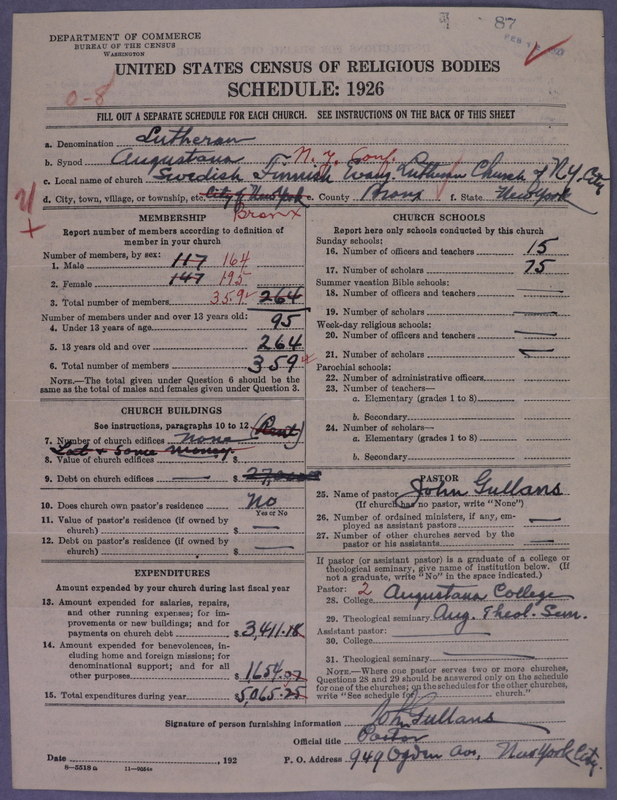 87
FEB
DEPARTMENT OF COMMERCE
BUREAU OF THE CENSUS
WASHINGTON
UNITED STATES CENSUS OF RELIGIOUS BODIES
SCHEDULE: 1926
0-8
FILL OUT A SEPARATE SCHEDULE FOR EACH CHURCH. SEE INSTRUCTIONS ON THE BACK OF THIS SHEET
a. Denomination Lutheran
b. Synod Augustana N. Y. Conf.
c. Local name of church Swedish Finnish Evang. Lutheran Church of N.Y. City
d. City, town, village, or township, etc. City of New York e. County Bronx f. State New York
Bronx
MEMBERSHIP
Report number of members according to definition of
member in your church
Number of members, by sex:
1. Male 117 164
2. Female 147 195
3. Total number of members 359 264
Number of members under and over 13 years old:
4. Under 13 years of age 95
5. 13 years old and over 264
6. Total number of members 359
NOTE.—The total given under Question 6 should be the
same as the total of males and females given under Question 3.
CHURCH BUILDINGS
See instructions, paragraphs 10 to 12 (Rent)
7. Number of church edifices none
Lot & Some money.
8. Value of church edifices $
9. Debt on church edifices $
10. Does church own pastor's residence No
Yes or No
11. Value of pastor's residence (if owned by
church) $
12. Debt on pastor's residence (if owned by
church) $
EXPENDITURES
Amount expended by your church during last fiscal year
13. Amount expended for salaries, repairs,
and other running expenses; for im-
provements or new buildings; and for
payments on church debt $ 3,411.18
14. Amount expended for benevolences, in-
cluding home and foreign missions; for
denominational support; and for all
other purposes $ 1654.07
15. Total expenditures during year $ 5,065.25
CHURCH SCHOOLS
Report here only schools conducted by this church
Sunday schools:
16. Number of officers and teachers 15
17. Number of scholars 75
Summer vacation Bible schools:
18. Number of officers and teachers
19. Number of scholars
Week-day religious schools:
20. Number of officers and teachers
21. Number of scholars
Parochial schools:
22. Number of administrative officers
23. Number of teachers—
a. Elementary (grades 1 to 8)
b. Secondary
24. Number of scholars—
a. Elementary (grades 1 to 8)
b. Secondary
PASTOR
25. Name of pastor John Gullans
(If church has no pastor, write "None")
26. Number of ordained ministers, if any, em-
ployed as assistant pastors
27. Number of other churches served by the
pastor or his assistants
If pastor (or assistant pastor) is a graduate of a college or
theological seminary, give name of institution below. (If
not a graduate, write "No" in the space indicated.)
Pastor: 2
28. College Augustana College
29. Theological seminary Aug. Theol. Sem.
Assistant pastor:
30. College
31. Theological seminary
NOTE.—Where one pastor serves two or more churches,
Questions 28 and 29 should be answered only on the schedule
for one of the churches; on the schedules for the other churches,
write "See schedule for church."
Signature of person furnishing information John Gullans
Official title Pastor
Date , 192 P. O. Address 949 Ogden Ave, New York City.
8—5518a 11—9034a